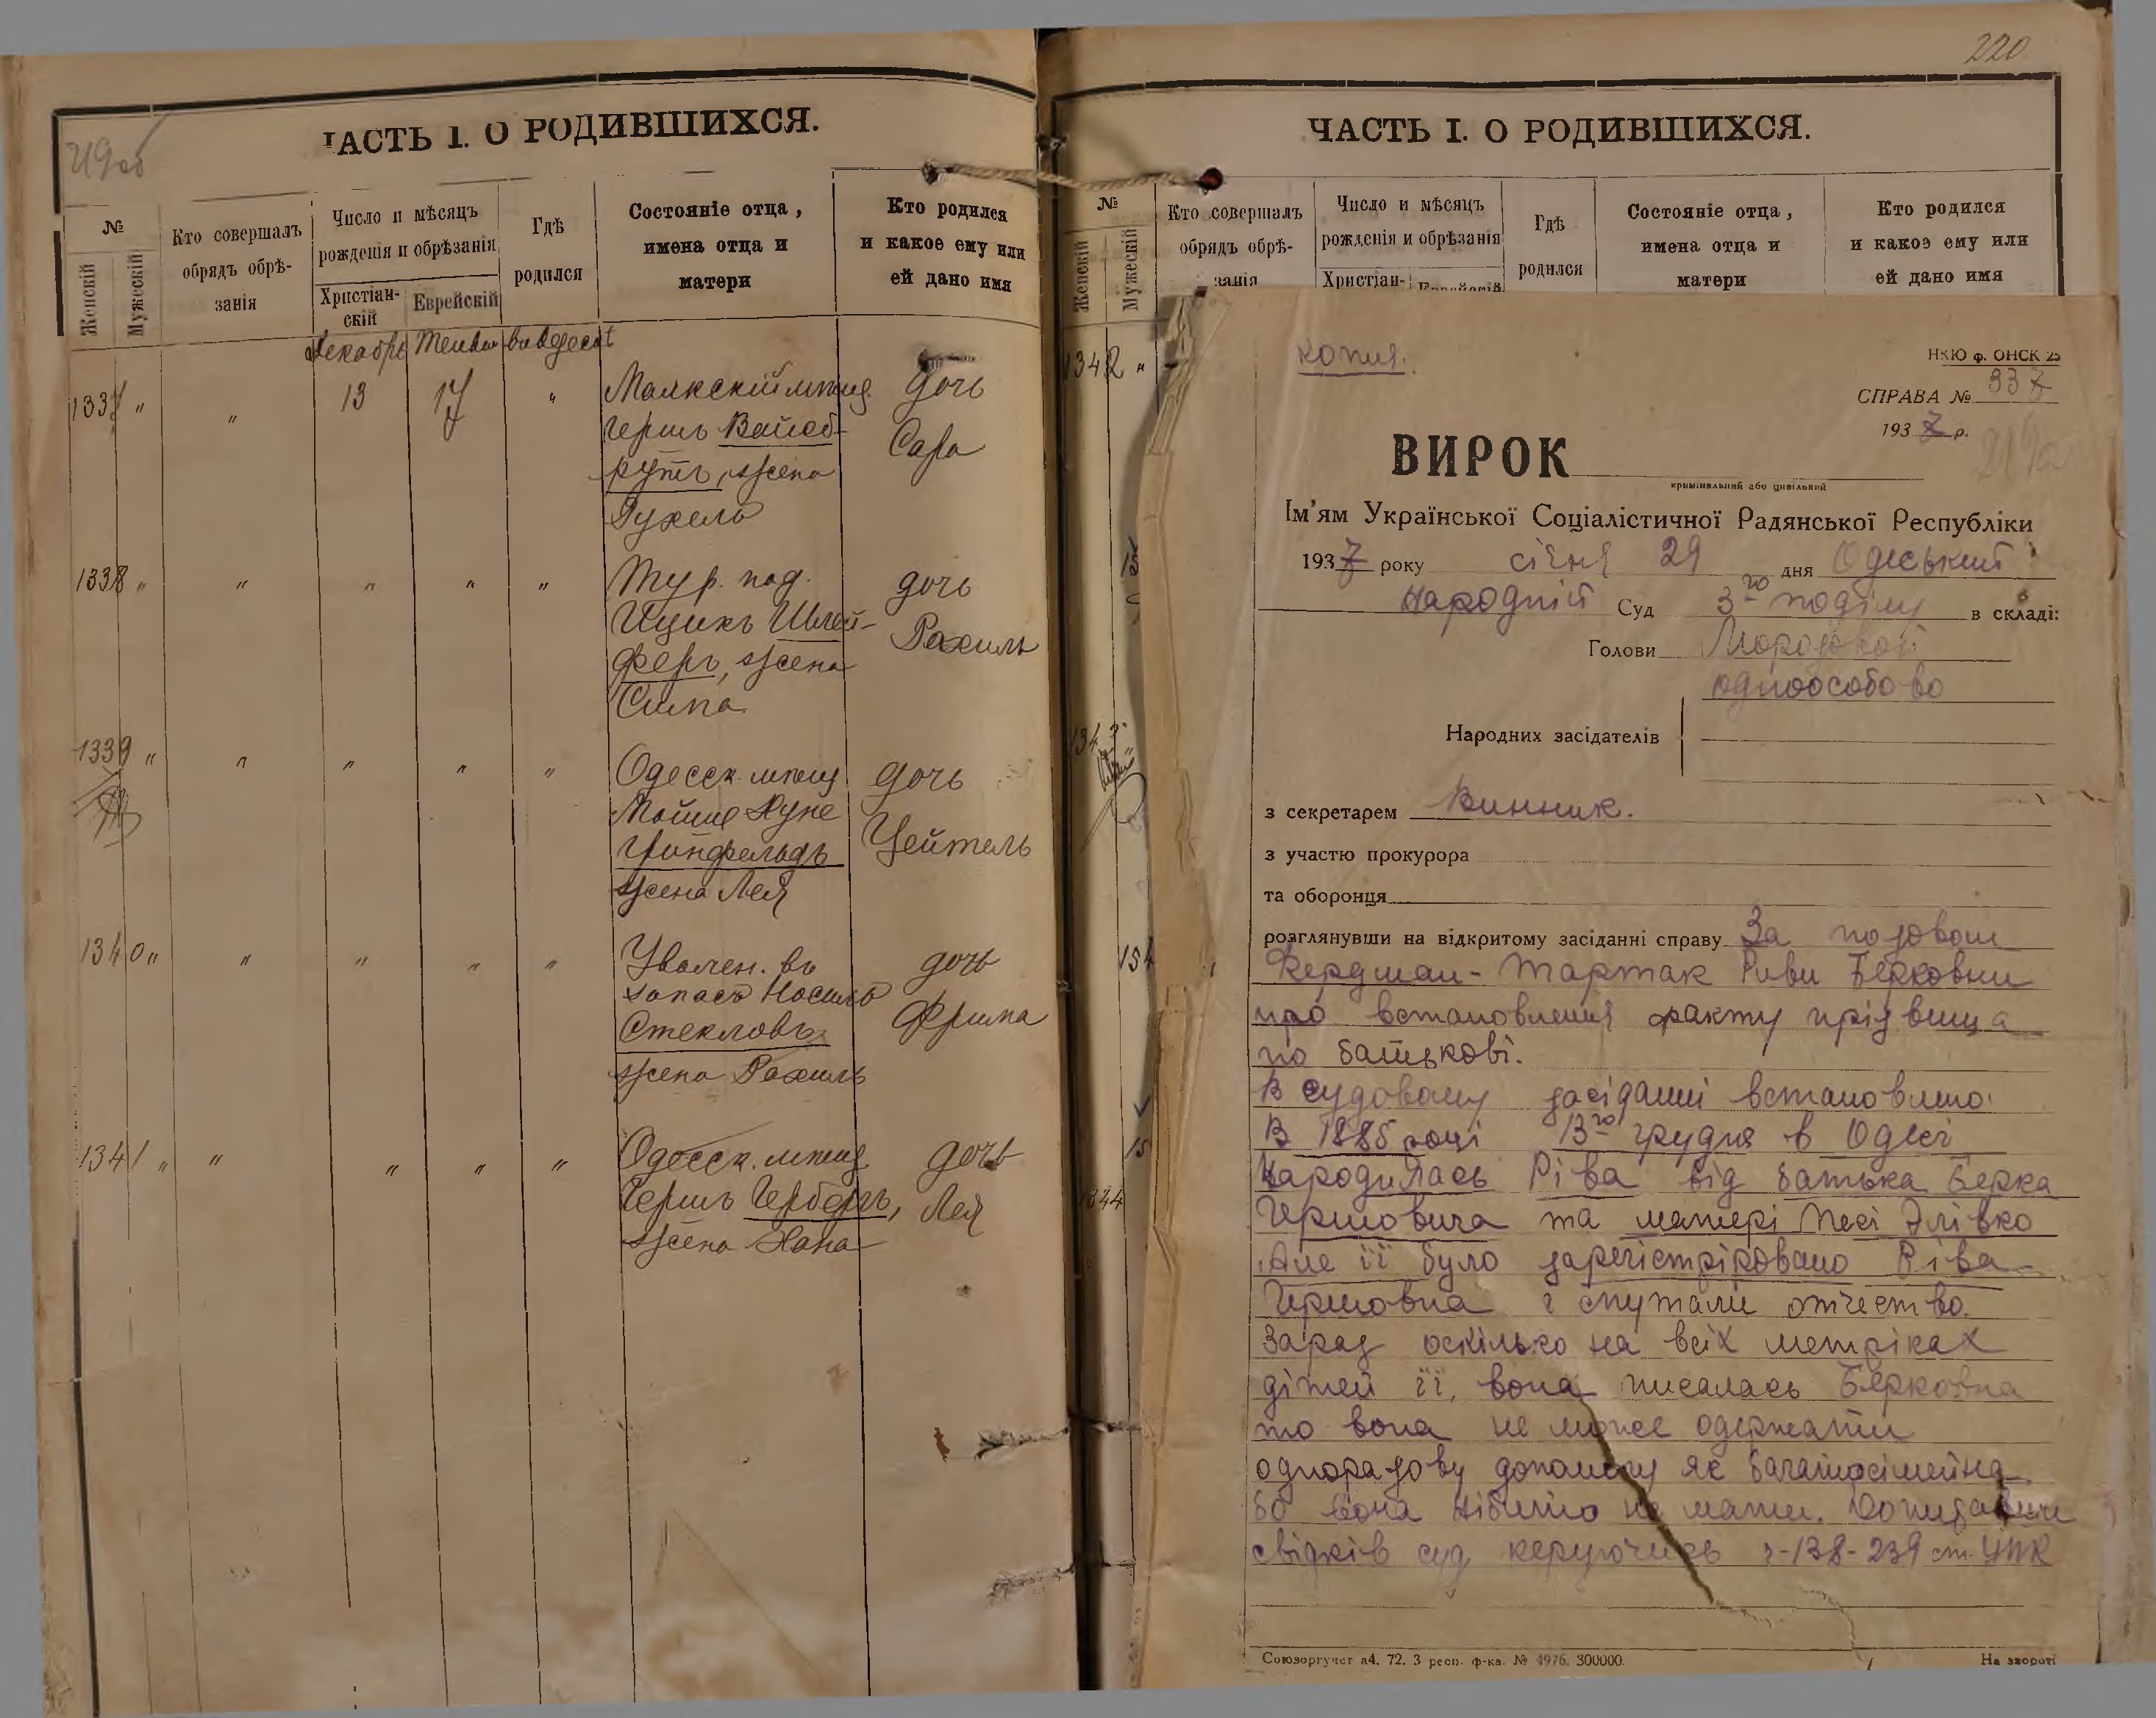 219об
ЧАСТЬ I. О РОДИВШИХСЯ.
№
Женскій
Мужескій
Кто совершалъ
обрядъ обрѣ-
занія
Число и мѣсяцъ
рожденія и обрѣзанія
Христіан-
скій
Еврейскій
Гдѣ
родился
Состояніе отца,
имена отца и
матери
Кто родился
и какое ему или
ей дано имя
Декабрь
въ Одессѣ
1337 " " 13 17 "
Маякскій мѣщ.
Гершъ Вайсб-
рутъ, жена
Рухель
дочь
Сара
1338 " " " " "
Тур. под.
Ицикъ Шлей-
феръ, жена
Сима
дочь
Рахиль
1339 " " " " "
Одесск. мѣщ
Мойше Нухе
Гринфельдъ
жена Лея
дочь
Цейтель
1340 " " " " "
Уволен. въ
запасъ Носимъ
Стекловъ
жена Рахиль
дочь
Фрима
1341 " " " " "
Одесск. мѣщ
Гершъ Герберъ,
жена Хана
дочь
Лея
220
ЧАСТЬ I. О РОДИВШИХСЯ.
№
Женскій
Мужескій
Кто совершалъ
обрядъ обрѣ-
занія
Число и мѣсяцъ
рожденія и обрѣзанія
Христіан-
Еврейскій
Гдѣ
родился
Состояніе отца,
имена отца и
матери
Кто родился
и какое ему или
ей дано имя
1342 "
1343
1344
копия.
НКЮ ф. ОНСК 25
СПРАВА № 337
1937 р.
ВИРОК
кримінальний або цивільний
Ім'ям Української Соціалістичної Радянської Республіки
1937 року січня 29 го дня Одеський
Народній Суд 3го поділу в складі:
Голови
одноособово
Народних засідателів
з секретарем Винник.
з участю прокурора
та оборонця
розглянувши на відкритому засіданні справу За позовом
Фердман-Тартак Риви Берковни
про встановлення факту прізвища
по батькові.
В судовому засіданні встановлено:
В 1885 році 13го грудня в Одесі
народилась Ріва від батька Берка
Гершовича та матері Песі Элівко
Але її було зарегістріровано Ріва
Гершовна і спутали отчество.
Зараз оскілько на всіх метріках
дітей її, вона писалась Берковна
то вона не може одержати
одноразову допомогу як багатосімейна
бо вона нібито не мати. Допитавши
свідків суд керуючись з-138-239 ст. ЦПК
Союзоргучет а4. 72. 3 респ. ф-ка. № 4976. 300000.
На звороті